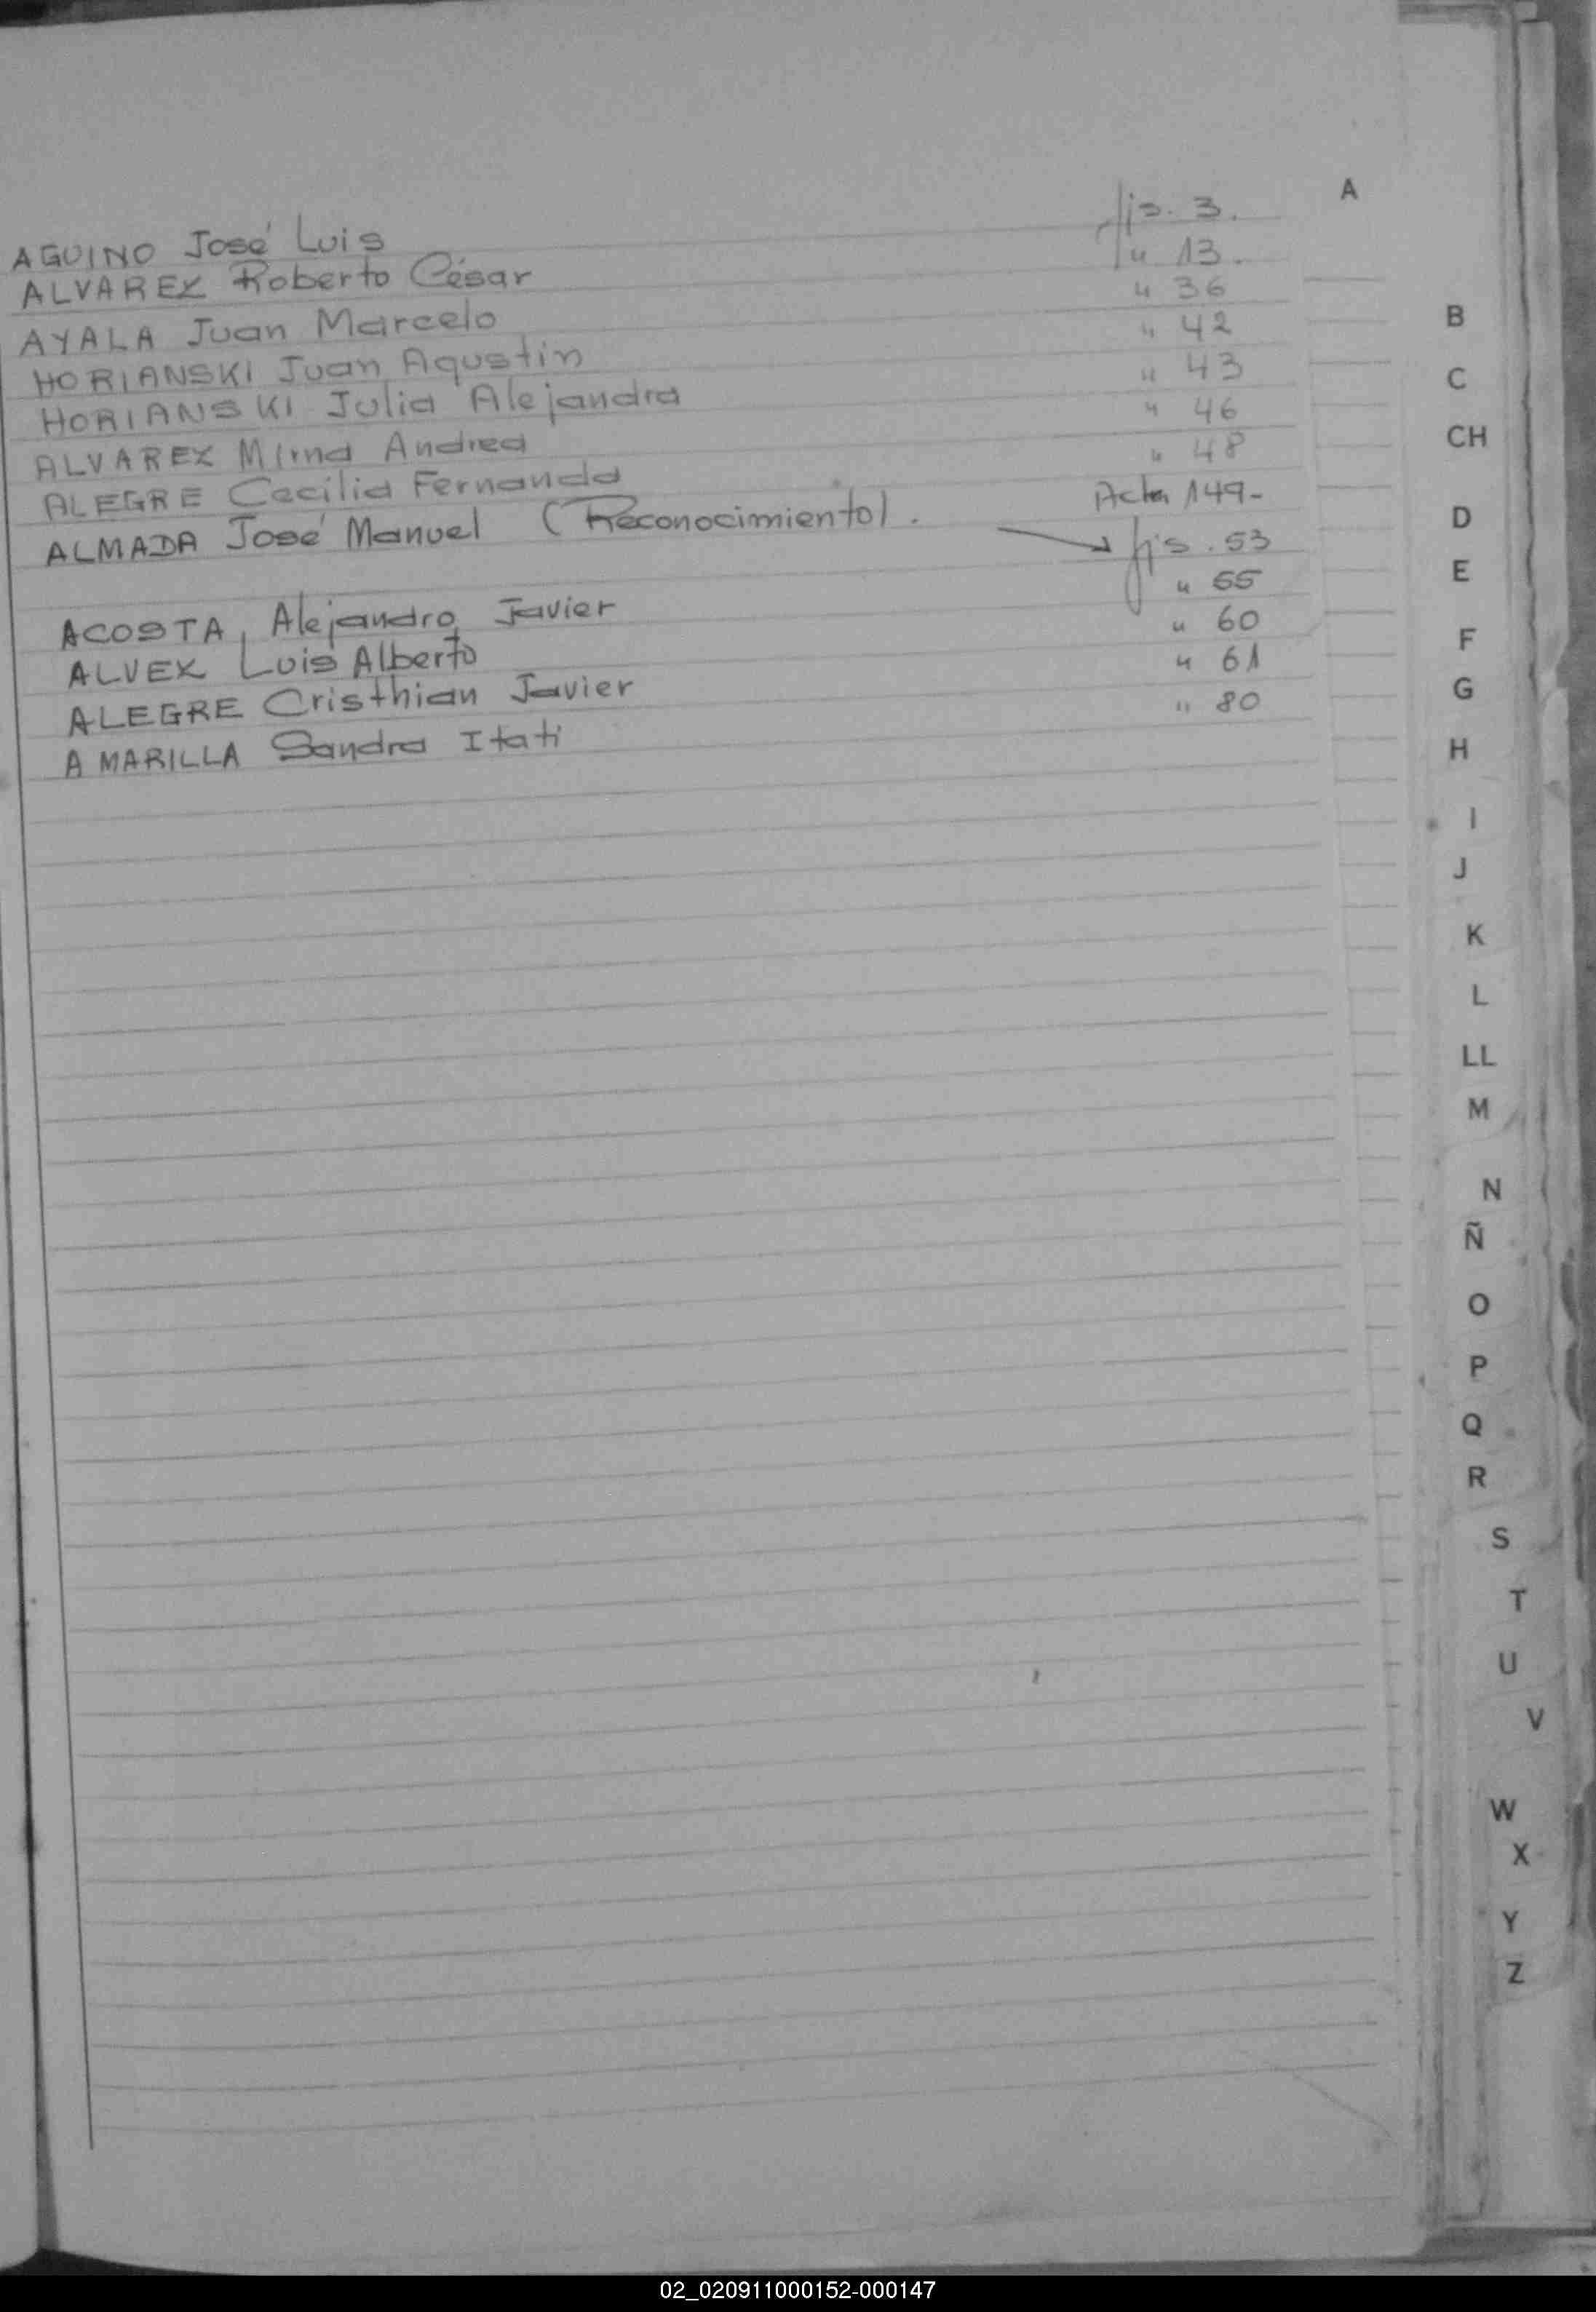 A
AGUINO José Luis fjs. 3.
ALVAREZ Roberto César " 13.
AYALA Juan Marcelo " 36
HORIANSKI Juan Agustin " 42
HORIANSKI Julia Alejandra " 43
ALVAREZ Mirna Andrea " 46
ALEGRE Cecilia Fernanda " 48
ALMADA José Manuel (Reconocimiento). Acta 149-
fjs. 53
ACOSTA, Alejandro Javier " 55
ALVEZ Luis Alberto " 60
ALEGRE Cristhian Javier " 61
AMARILLA Sandra Itati " 80
B
C
CH
D
E
F
G
H
I
J
K
L
LL
M
N
Ñ
O
P
Q
R
S
T
U
V
W
X
Y
Z
02_020911000152-000147